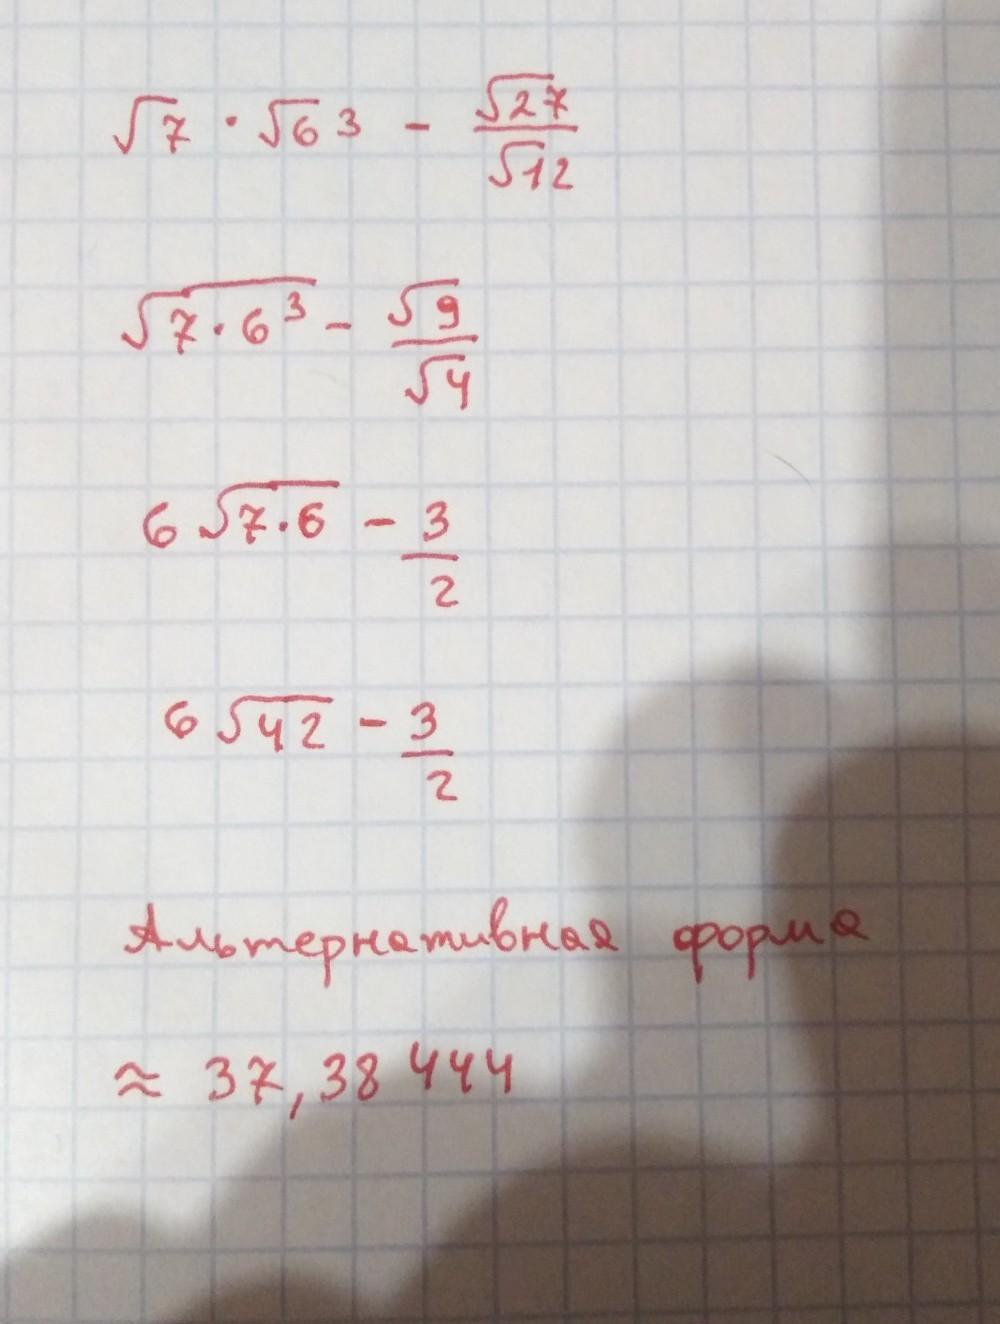 √7 · √6³ - √27/√12
√7·6³ - √9/√4
6 √7·6 - 3/2
6 √42 - 3/2
Альтернативная форма
≈ 37,38444